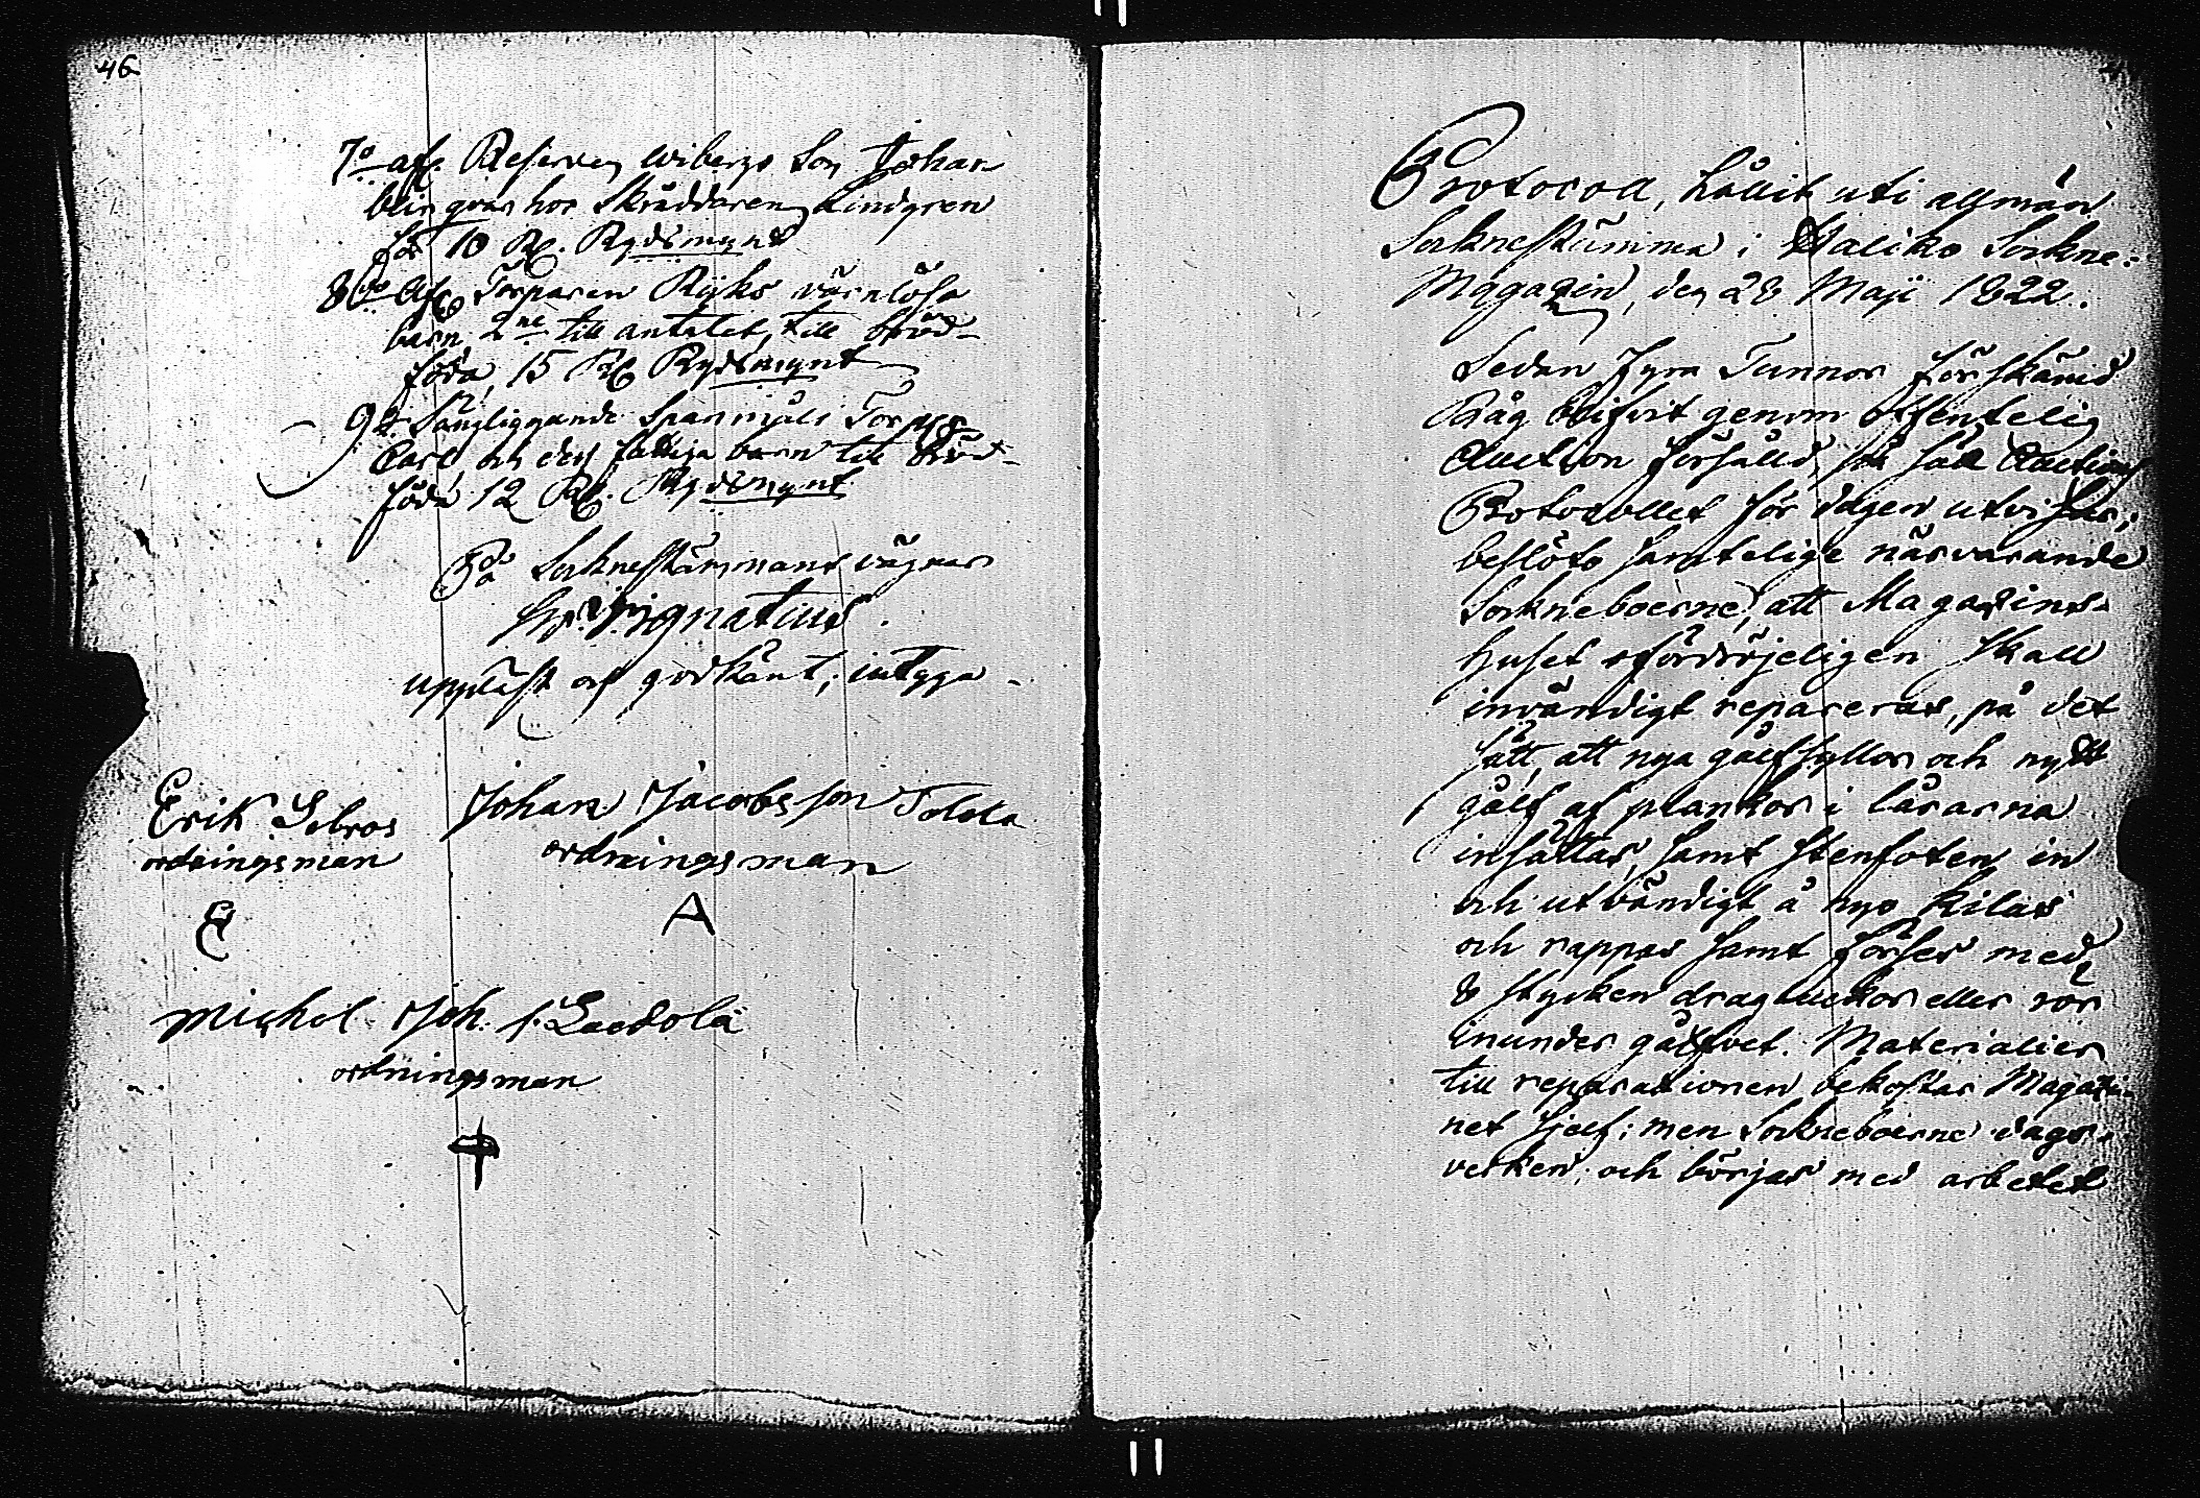 46
7:o afl. Reserven Wibergs Son Johan
blir qvar hos Skräddaren Lindgren
för 10 Rd. Rgdsmynt
8:vo Afl. Torparen Rijks värnlösa
barn, 2:ne till antalet, till bröd-
föda, 15 Rd Rgdsmynt
9: Sängliggande Spannmåls Torpa
Carl, och des fattiga barn till bröd-
föda 12 Rd. Rgdsmynt
På Sockenestämmans vägnar
Ignatius.
Uppläst och godkänt, intyga
Erik Sebros Johan Jacobsson Tolola
ordningsman ordningsman
E A
Michel Joh. s. Laedola
ordningsman
Protocoll, hållit uti allmän
Sockne stämma i Haliko Sockne-
Magazin, den 28 Maji 1822.
Sedan fyra Tunnor förskämd
Råg blifvit genom offentelig
Auction försåld, så sätt Auctions
Protocollet för dagen utvisar;
beslöto samtelige närvarande
Sockneboerne, att Magazins-
huset ofördröjeligen skall
invändigt reparerас, på det
sätt, att nya gålfsyllor och nytt
gålf af plankor i lårarna
insättas, samt stenfoten in
och utvändigt å nyo kilas
och rappas samt förses med
8 stycken dragluckor eller rör
inunder gålfvet. Materialier
till reparationen bekostar Magazi-
net sjelf; men Sockneboerne dags-
verken; och börjas med arbetet